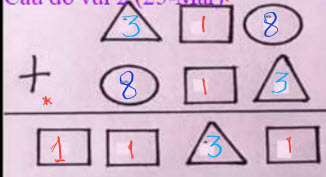 Câu đố vui 2 (25-Mar)
3 1 8
+ 8 1 3
*
1 1 3 1